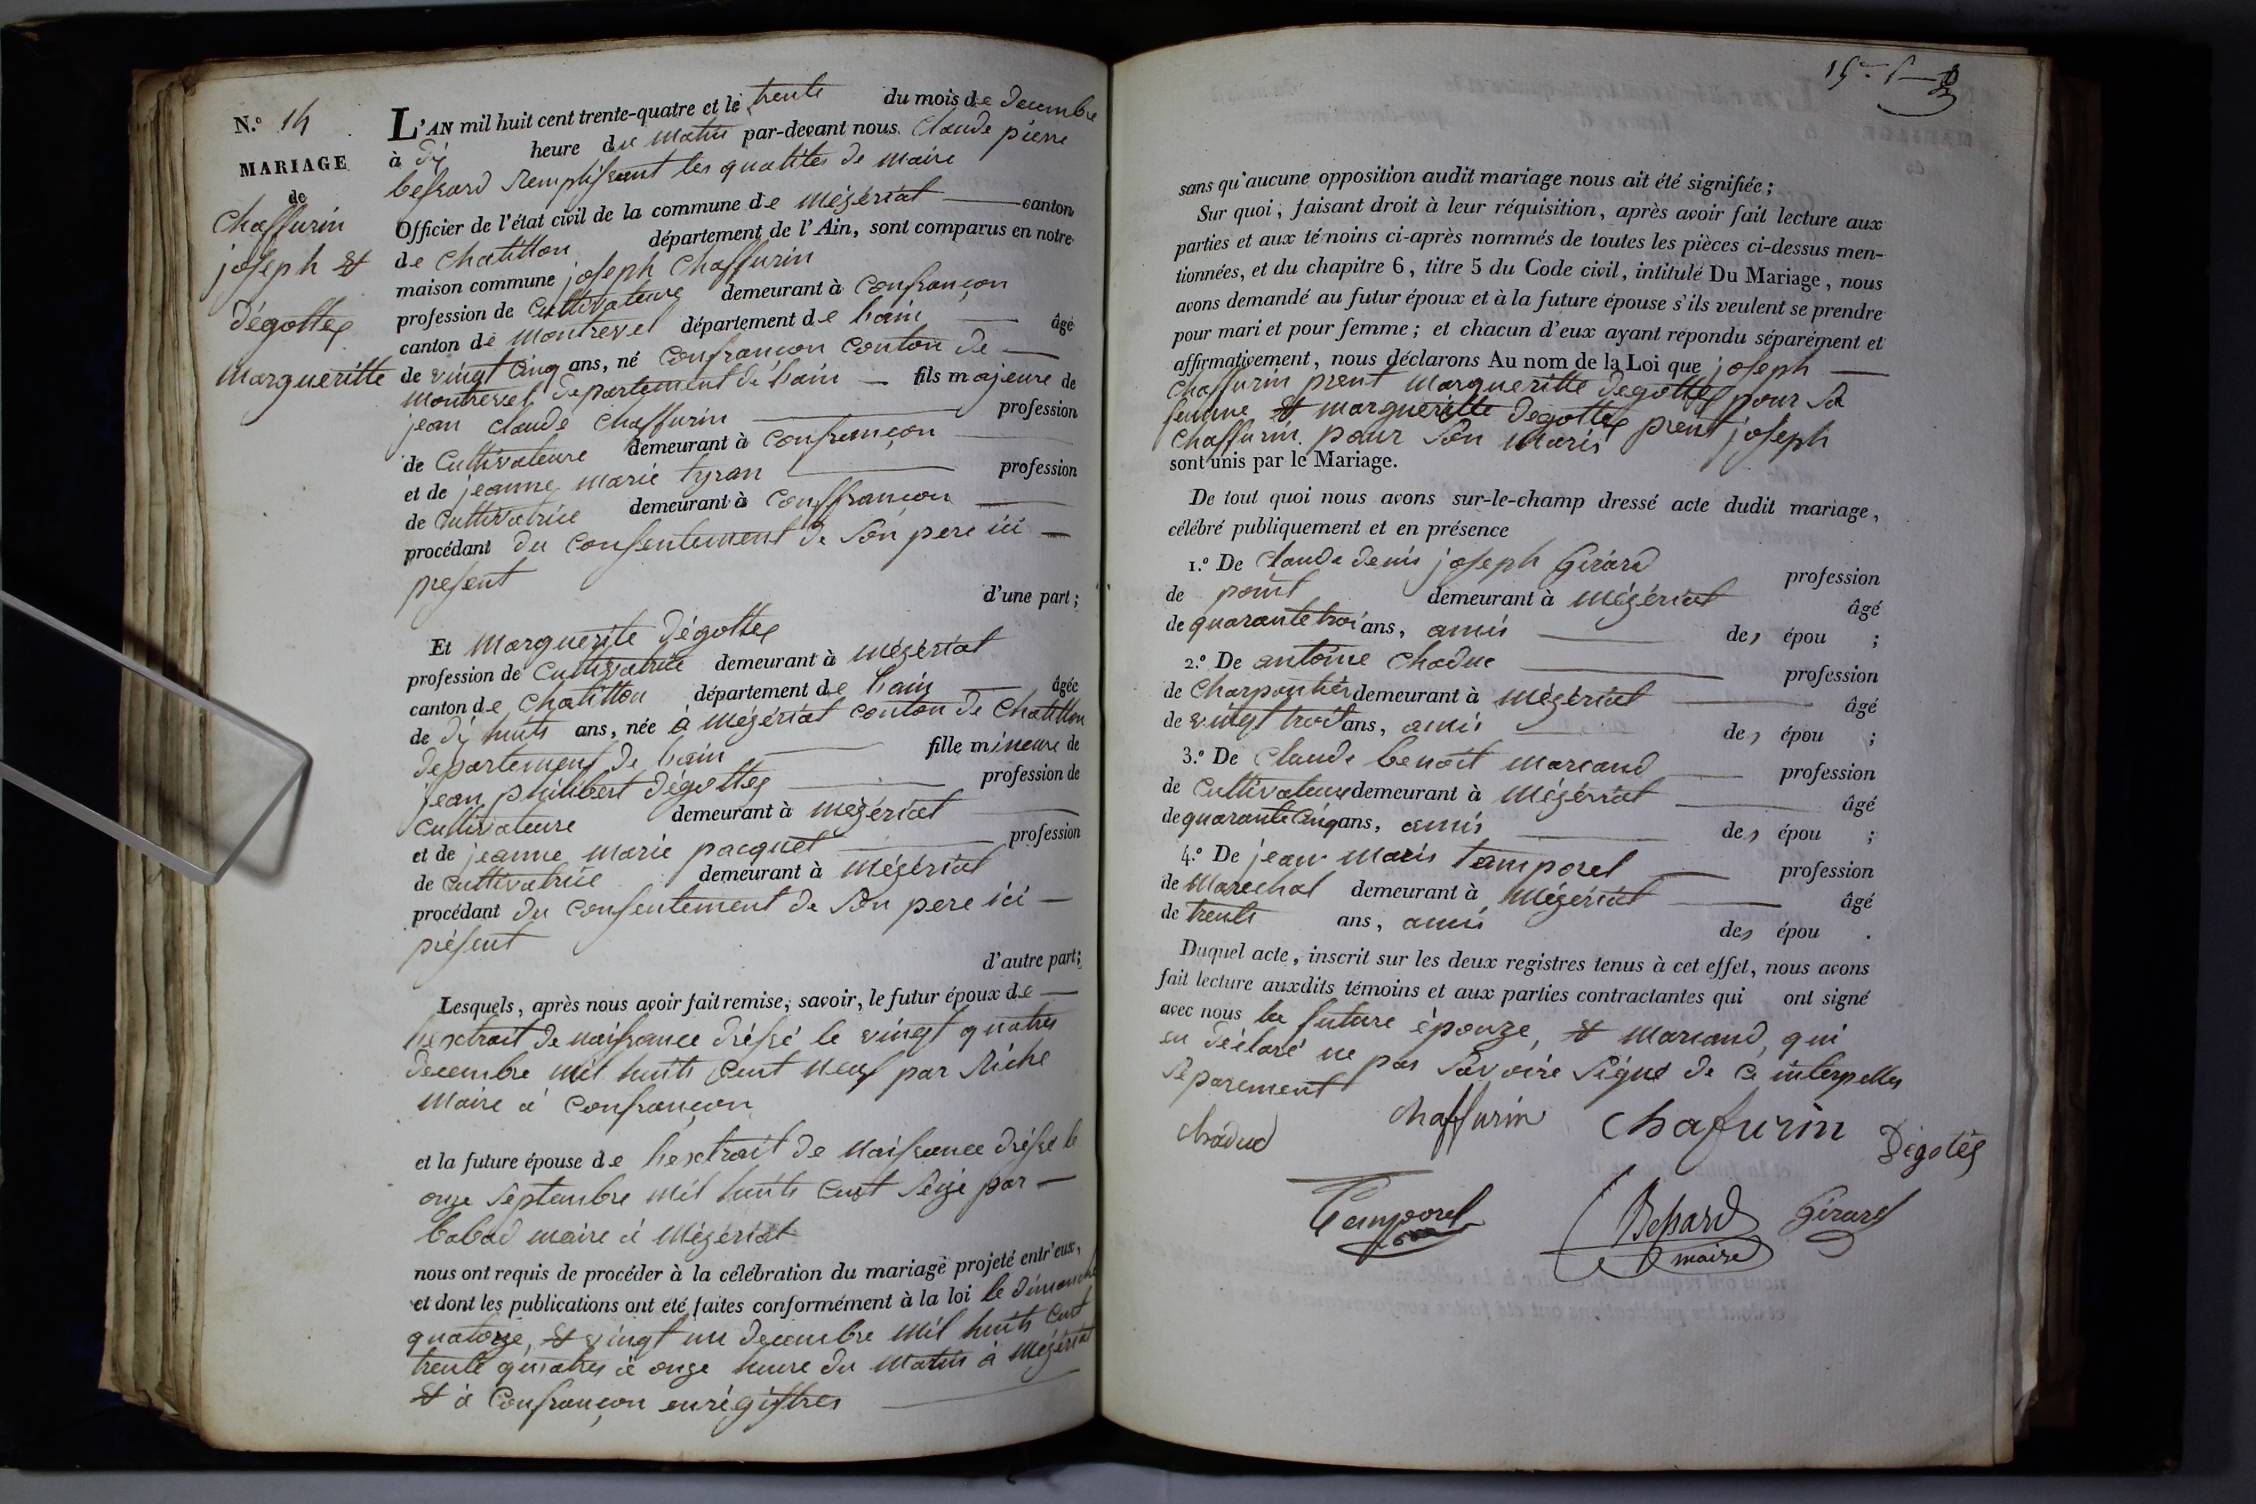 N.º 14
MARIAGE
de
Chaffurin
joseph et
dégottex
margueritte
L'AN mil huit cent trente-quatre et le trente du mois de decembre
à dix heure du matin par-devant nous Claude pierre
besſard Remplisſant les qualités de maire
Officier de l'état civil de la commune de mézériat canton
de chatillon département de l'Ain, sont comparus en notre
maison commune joseph Chaffurin
profession de Cultivateure demeurant à Confrançon
canton de montrevel département de lain âgé
de vingt cinq ans, né Confrançon conton de
montrevel departement de lain fils majeure de
jean claude Chaffurin profession
de Cultivateure demeurant à Confrançon
et de jeanne marie tyran profession
de Cultivatrice demeurant à Conffrançon
procédant du consentement de Son pere ici
present
d'une part ;
Et marguerite dégottex
profession de Cultivatrice demeurant à mézériat
canton de chatillon département de lain âgée
de dix huits ans, née à mézériat conton de chatillon
departement de lain fille mineure de
jean philibert dégottex profession de
Cultivateure demeurant à mézériat
et de jeanne marie pacquet profession
de Cultivatrice demeurant à mézériat
procédant du consentement de Son pere ici
présent
d'autre part ;
Lesquels, après nous avoir fait remise, savoir, le futur époux de
lextrait de naisſance drésſé le vingt quatres
decembre mil huits Cent neuf par Riche
maire à Confrançon
et la future épouse de lextrait de naisſance drésſé le
onze Septembre mil huits Cent Seize par
babad maire à mézériat
nous ont requis de procéder à la célébration du mariage projeté entr'eux,
et dont les publications ont été faites conformément à la loi le dimanche
quatorze, et vingt un decembre mil huits Cent
trente quatres à onze heure du matin à mézériat
et à Confrançon enrégistres
sans qu'aucune opposition audit mariage nous ait été signifiée ;
Sur quoi, faisant droit à leur réquisition, après avoir fait lecture aux
parties et aux témoins ci-après nommés de toutes les pièces ci-dessus men-
tionnées, et du chapitre 6, titre 5 du Code civil, intitulé Du Mariage, nous
avons demandé au futur époux et à la future épouse s'ils veulent se prendre
pour mari et pour femme ; et chacun d'eux ayant répondu séparément et
affirmativement, nous déclarons Au nom de la Loi que joseph
Chaffurin prent margueritte degottex pour Sa
femme et margueritte degottex prent joseph
Chaffurin pour Son maris
sont unis par le Mariage.
De tout quoi nous avons sur-le-champ dressé acte dudit mariage,
célébré publiquement et en présence
1.º De Claude denis joseph Girard profession
de demeurant à mézériat âgé
de quarante troi ans, amis des épou ;
2.º De antoine Chaduc profession
de Charpontier demeurant à mézériat âgé
de vingt troit ans, amis des épou ;
3.º De Claude benoit marcand profession
de Cultivateur demeurant à mézériat âgé
de quarante Cinq ans, amis des épou ;
4.º De jean maris tamporel profession
de Marechal demeurant à mézériat âgé
de trente ans, amis des épou .
Duquel acte, inscrit sur les deux registres tenus à cet effet, nous avons
fait lecture auxdits témoins et aux parties contractantes qui ont signé
avec nous la future épouze, et marcand, qui
on déclaré ne pas Savoire Signé de Ce interpelles
Séparement
chaduc chaffurin Chafurin Dégotéx
Tamporel Besſard Girard
maire